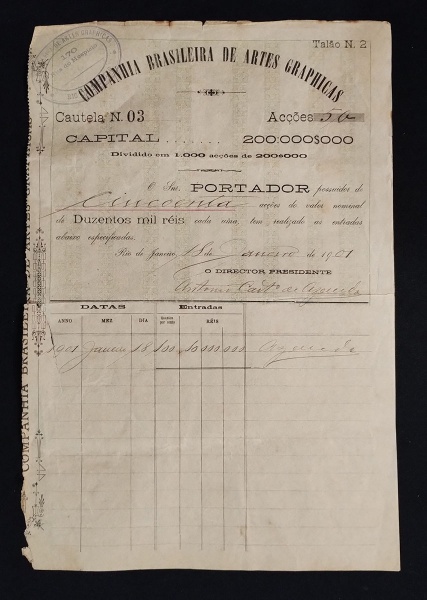 Talão N. 2
COMPANHIA BRASILEIRA DE ARTES GRAPHICAS
Cautela N. 03 Acções 50
CAPITAL ....... 200:000$000
Dividido em 1.000 acções de 200$000
O Snr. PORTADOR possuidor de
Cincoenta acções do valor nominal
de Duzentos mil réis cada uma, tem realizado as entradas
abaixo especificadas.
Rio de Janeiro, 18 de Janeiro de 1901
O DIRECTOR PRESIDENTE
Antonio
DATAS Entradas
ANNO MEZ DIA RÉIS
1901 Janeiro 18 100 10.000.000
COMPANHIA BRASILEIRA DE ARTES GRAPHICAS